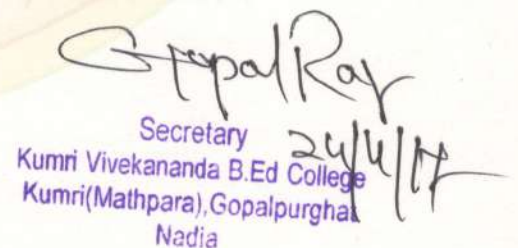 Gopal Ray
Secretary 24/4/17
Kumri Vivekananda B.Ed College
Kumri(Mathpara),Gopalpurghat
Nadia